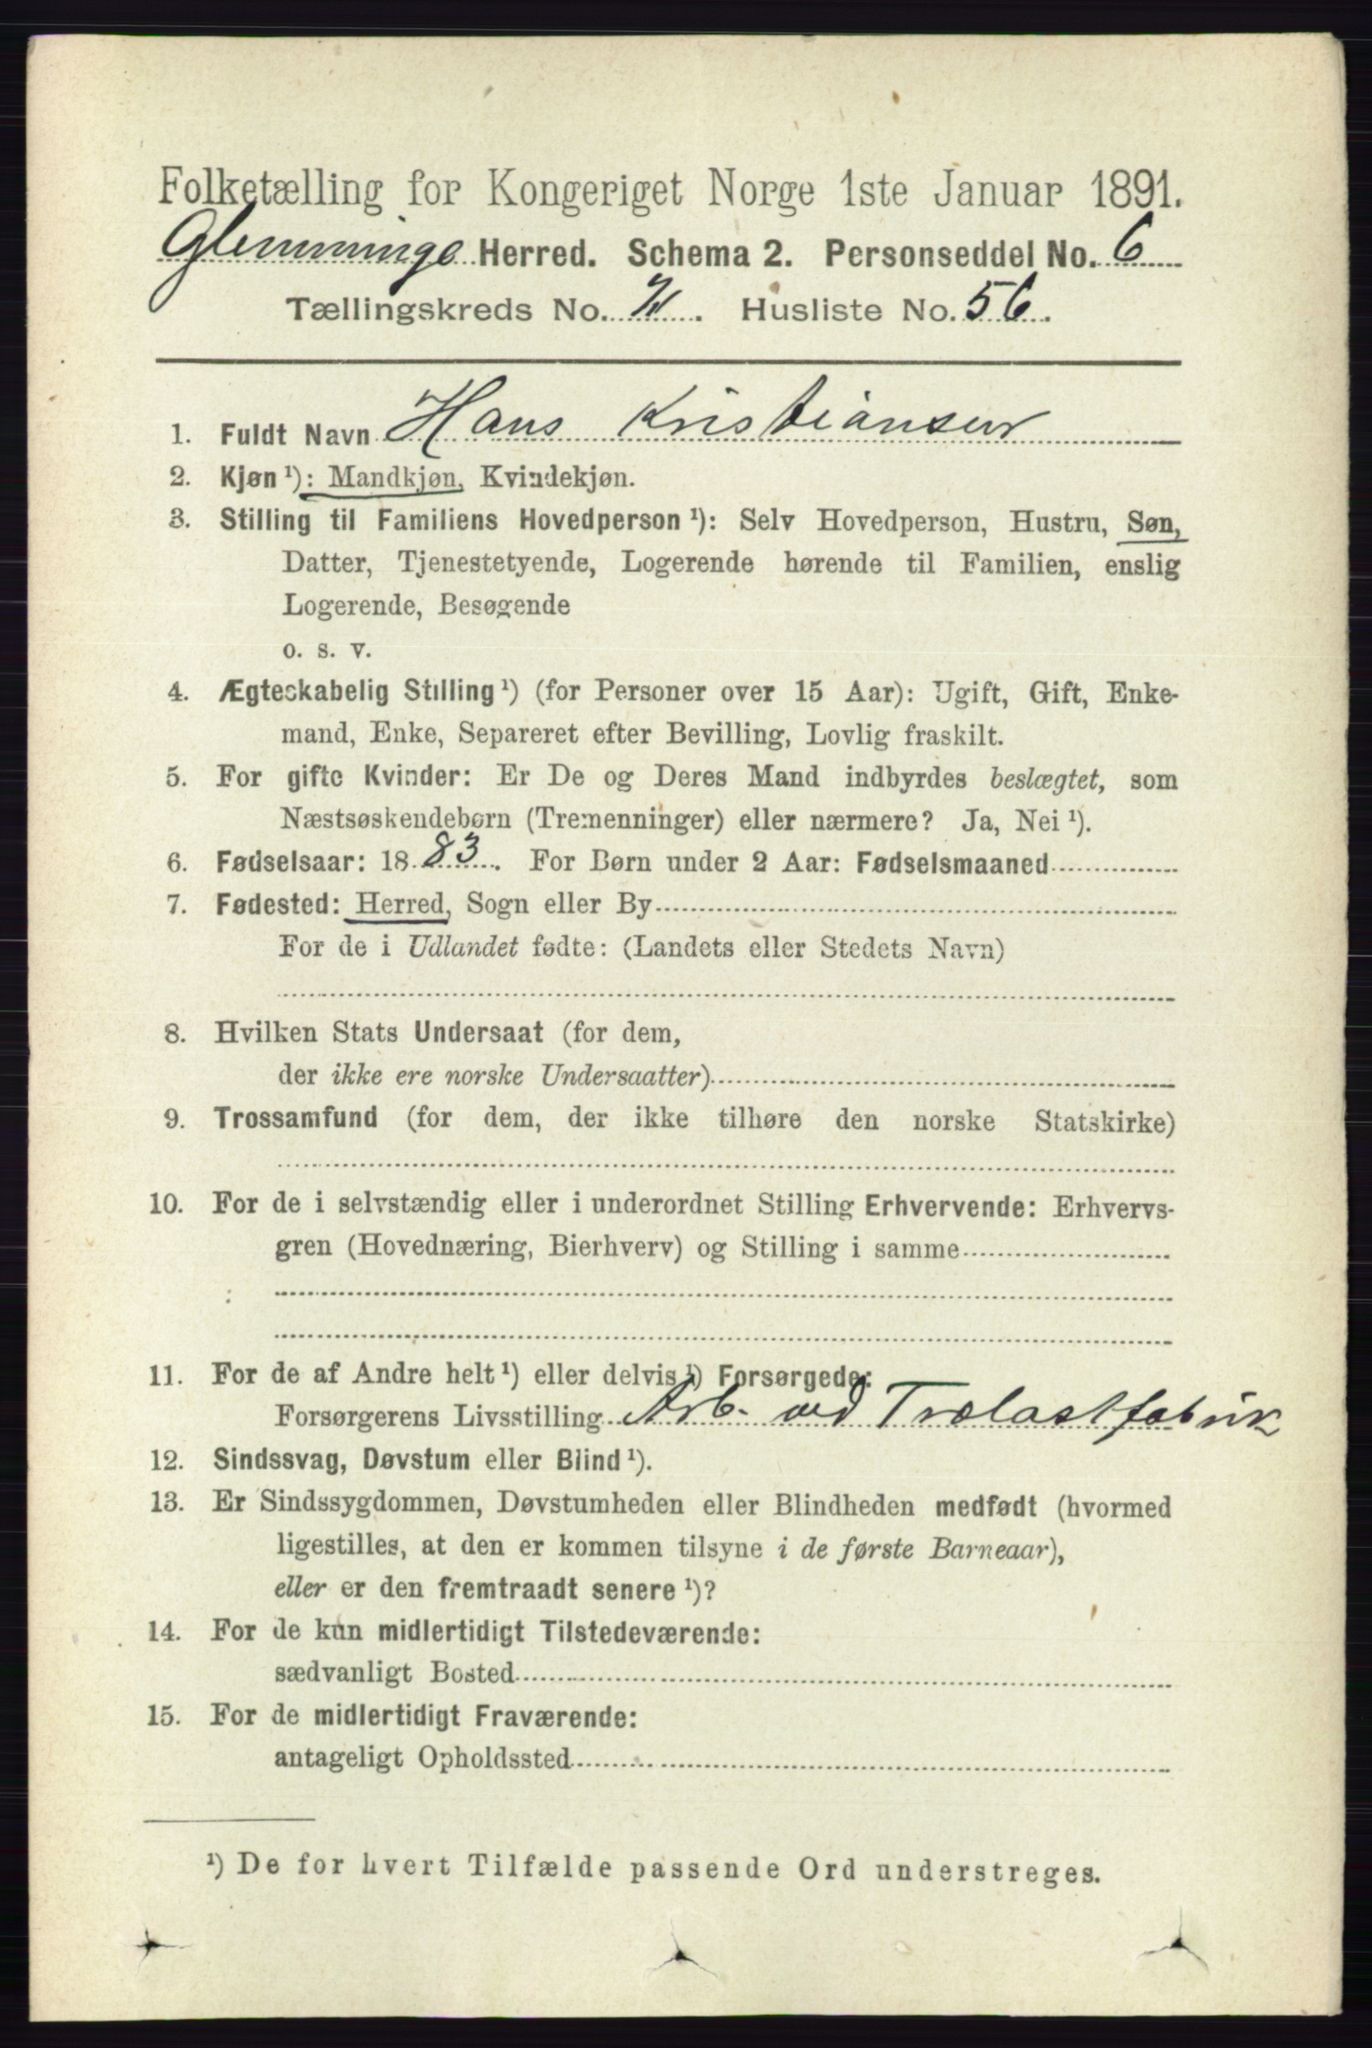 Folketælling for Kongeriget Norge 1ste Januar 1891.
Glemminge Herred. Schema 2. Personseddel No. 6
Tællingskreds No. Husliste No. 56.
1. Fuldt Navn Hans Kristiansen
2. Kjøn ¹): Mandkjøn, Kvindekjøn.
3. Stilling til Familiens Hovedperson ¹): Selv Hovedperson, Hustru, Søn,
Datter, Tjenestetyende, Logerende hørende til Familien, enslig
Logerende, Besøgende
o. s. v.
4. Ægteskabelig Stilling ¹) (for Personer over 15 Aar): Ugift, Gift, Enke-
mand, Enke, Separeret efter Bevilling, Lovlig fraskilt.
5. For gifte Kvinder: Er De og Deres Mand indbyrdes beslægtet, som
Næstsøskendebørn (Tremenninger) eller nærmere? Ja, Nei ¹).
6. Fødselsaar: 1883. For Børn under 2 Aar: Fødselsmaaned
7. Fødested: Herred, Sogn eller By
For de i Udlandet fødte: (Landets eller Stedets Navn)
8. Hvilken Stats Undersaat (for dem,
der ikke ere norske Undersaatter)
9. Trossamfund (for dem, der ikke tilhøre den norske Statskirke)
10. For de i selvstændig eller i underordnet Stilling Erhvervende: Erhvervs-
gren (Hovednæring, Bierhverv) og Stilling i samme
11. For de af Andre helt ¹) eller delvis ¹) Forsørgede:
Forsørgerens Livsstilling Arb. ved Trælastfabrik
12. Sindssvag, Døvstum eller Blind ¹).
13. Er Sindssygdommen, Døvstumheden eller Blindheden medfødt (hvormed
ligestilles, at den er kommen tilsyne i de første Barneaar),
eller er den fremtraadt senere ¹)?
14. For de kun midlertidigt Tilstedeværende:
sædvanligt Bosted
15. For de midlertidigt Fraværende:
antageligt Opholdssted
¹) De for hvert Tilfælde passende Ord understreges.